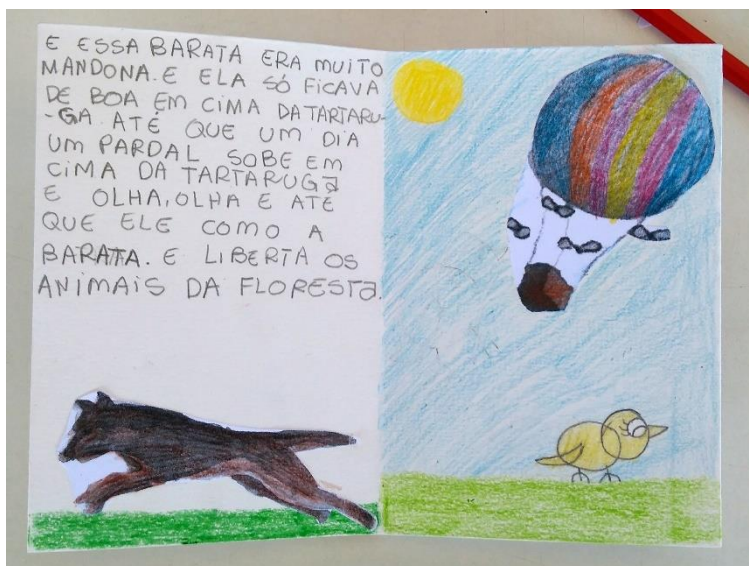 E ESSA BARATA ERA MUITO
MANDONA. E ELA SÓ FICAVA
DE BOA EM CIMA DA TARTARU-
-GA ATÉ QUE UM DIA
UM PARDAL SOBE EM
CIMA DA TARTARUGA
E OLHA, OLHA E ATÉ
QUE ELE COMO A
BARATA. E LIBERTA OS
ANIMAIS DA FLORESTA.